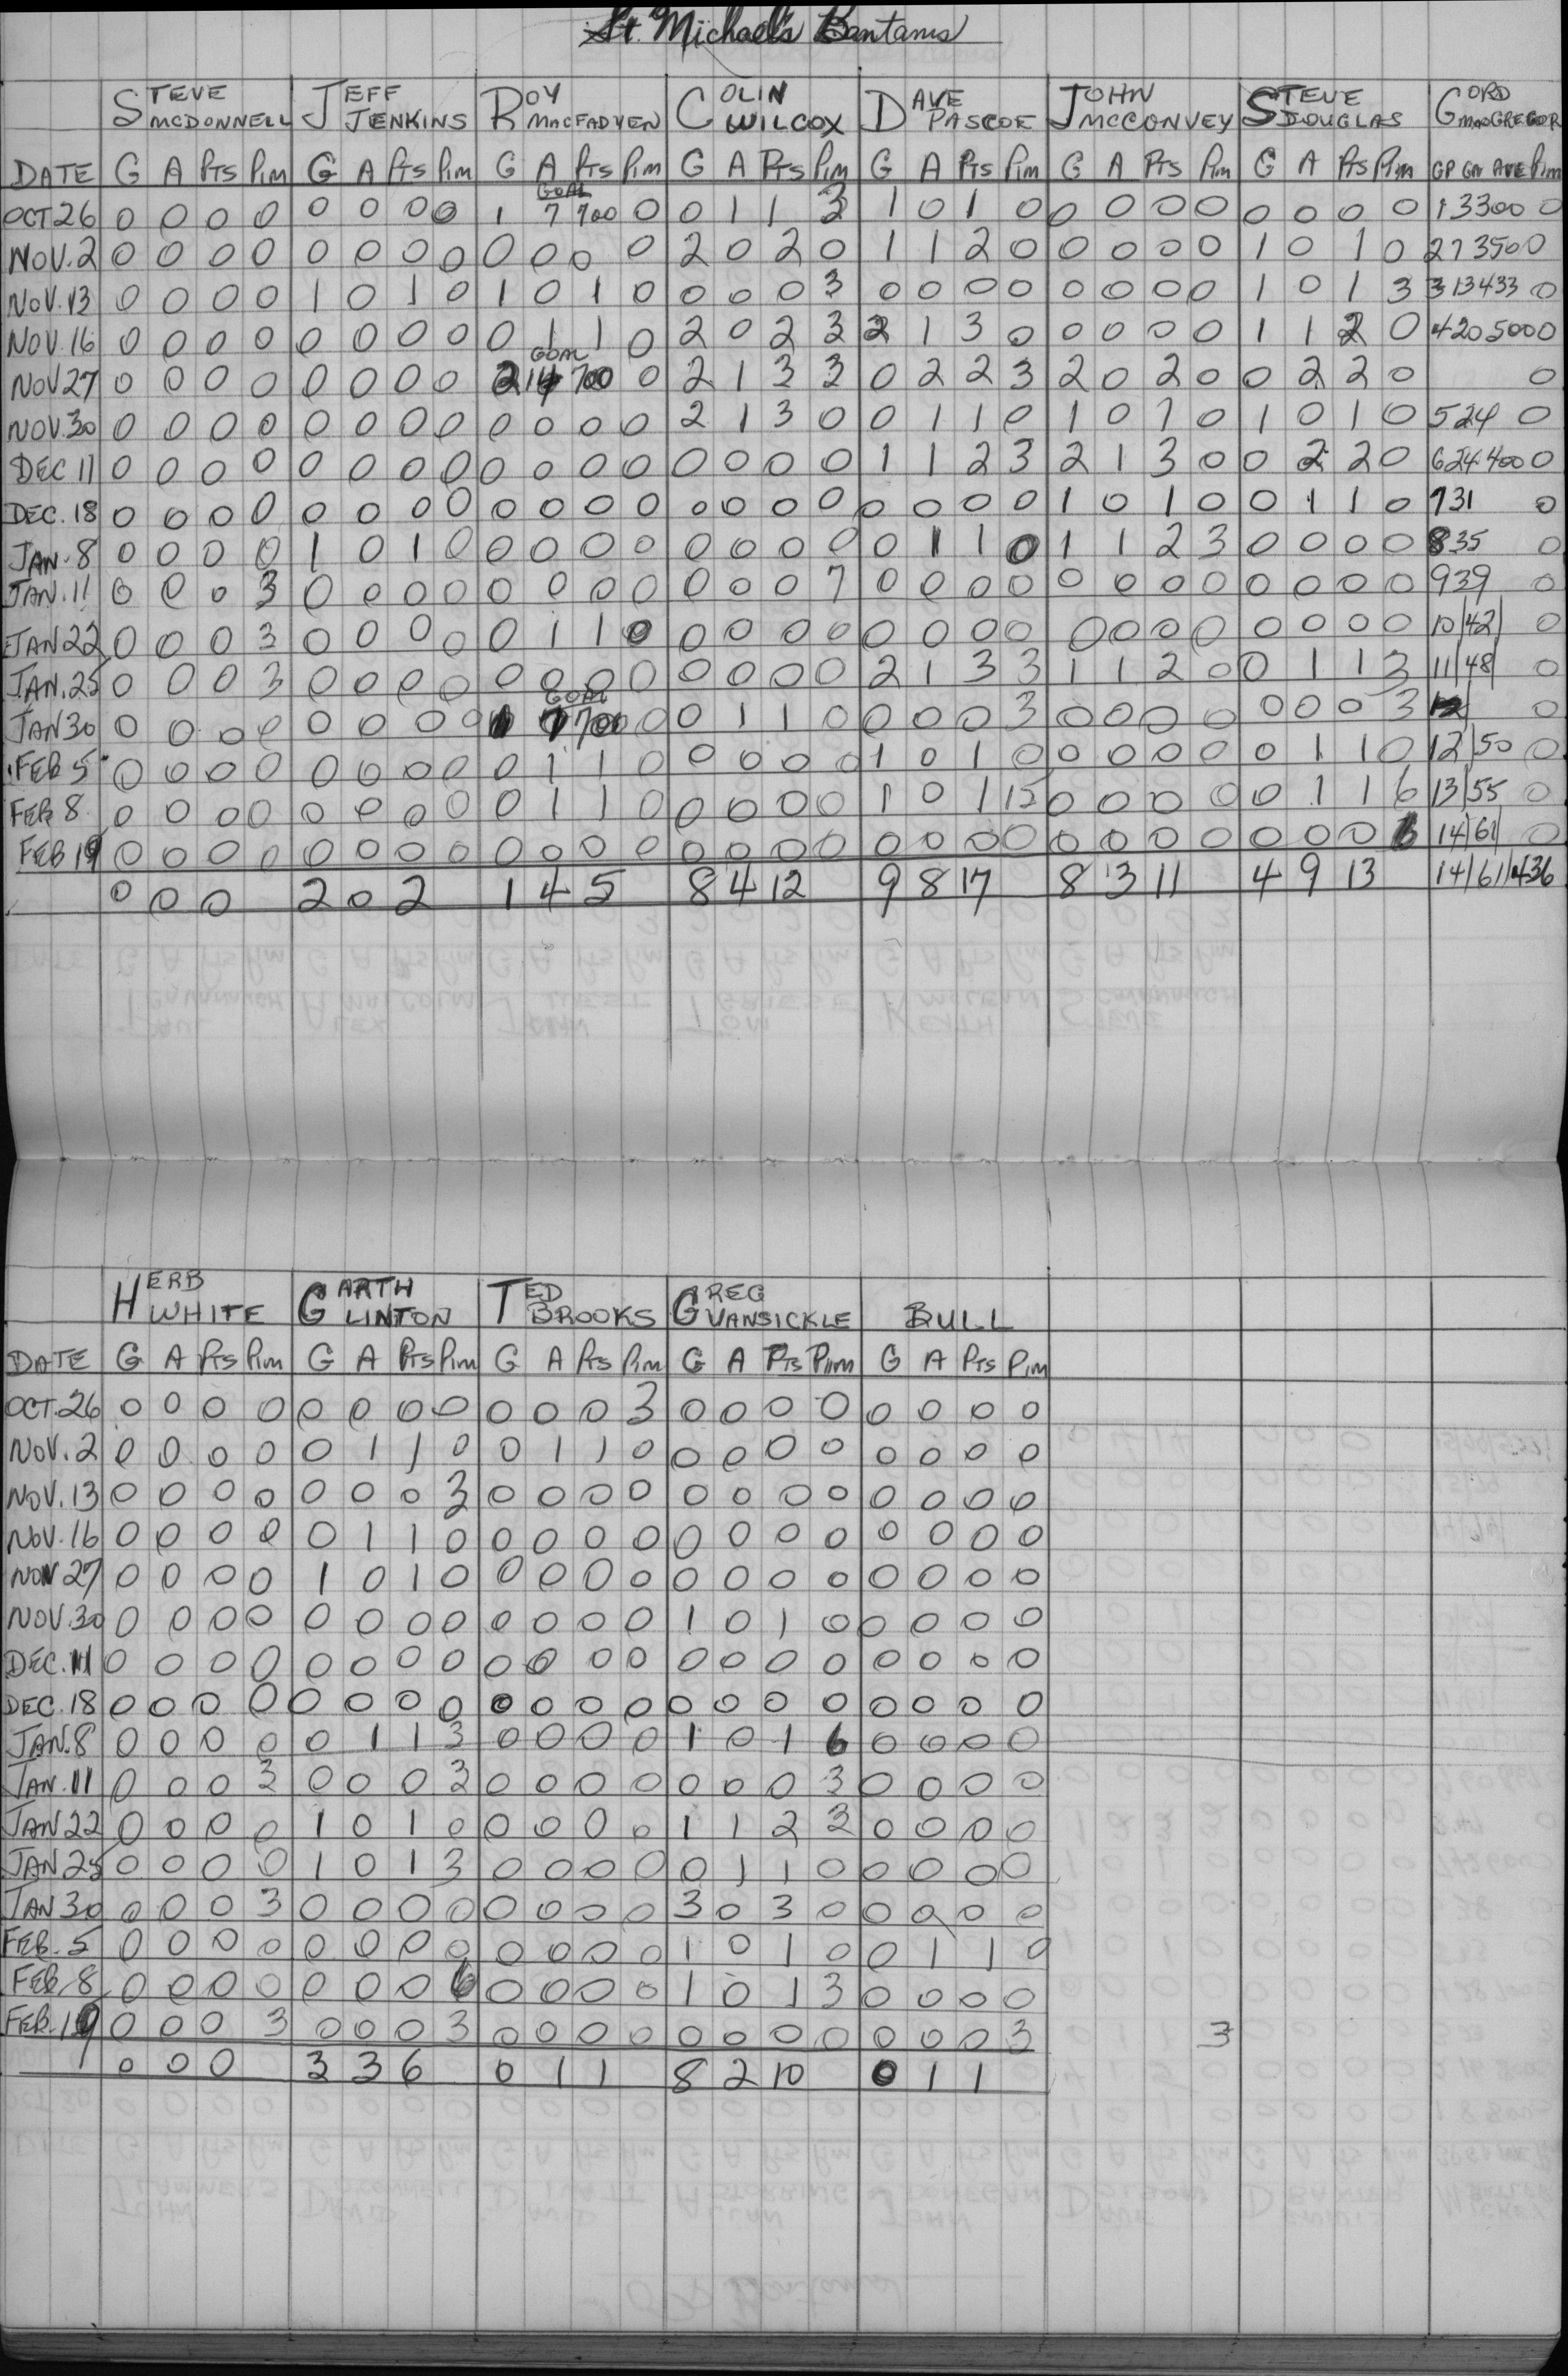 St. Michael's Bantams
STEVE MCDONNELL JEFF JENKINS ROY MACFADYEN COLIN WILCOX DAVE PASCOE JOHN MCCONVEY STEVE DOUGLAS GORD MACGREGOR
DATE G A Pts Pim G A Pts Pim G A Pts Pim G A Pts Pim G A Pts Pim G A Pts Pim G A Pts Pim GP GA AVE Pim
OCT 26 0 0 0 0 0 0 0 0 1 GOAL 7 700 0 0 1 1 3 1 0 1 0 0 0 0 0 0 0 0 0 1 3 300 0
NOV. 2 0 0 0 0 0 0 0 0 0 0 0 0 2 0 2 0 1 1 2 0 0 0 0 0 1 0 1 0 2 7 350 0
NOV. 13 0 0 0 0 1 0 1 0 1 0 1 0 0 0 0 3 0 0 0 0 0 0 0 0 1 0 1 3 3 13 433 0
NOV. 16 0 0 0 0 0 0 0 0 0 1 1 0 2 0 2 3 2 1 3 0 0 0 0 0 1 1 2 0 4 20 500 0
NOV 27 0 0 0 0 0 0 0 0 2 GOAL 14 700 0 2 1 3 3 0 2 2 3 2 0 2 0 0 2 2 0 0
NOV. 30 0 0 0 0 0 0 0 0 0 0 0 0 2 1 3 0 0 1 1 0 1 0 1 0 1 0 1 0 5 24 0
DEC 11 0 0 0 0 0 0 0 0 0 0 0 0 0 0 0 0 1 1 2 3 2 1 3 0 0 2 2 0 6 24 400 0
DEC. 18 0 0 0 0 0 0 0 0 0 0 0 0 0 0 0 0 0 0 0 0 1 0 1 0 0 1 1 0 7 31 0
JAN. 8 0 0 0 0 1 0 1 0 0 0 0 0 0 0 0 0 0 1 1 0 1 1 2 3 0 0 0 0 8 35 0
JAN. 11 0 0 0 3 0 0 0 0 0 0 0 0 0 0 0 7 0 0 0 0 0 0 0 0 0 0 0 0 9 39 0
JAN 22 0 0 0 3 0 0 0 0 0 1 1 0 0 0 0 0 0 0 0 0 0 0 0 0 0 0 0 0 10 42 0
JAN. 25 0 0 0 3 0 0 0 0 0 0 0 0 0 0 0 0 2 1 3 3 1 1 2 0 0 1 1 3 11 48 0
JAN 30 0 0 0 0 0 0 0 0 1 GOAL 7 700 0 0 1 1 0 0 0 0 3 0 0 0 0 0 0 0 3 0
FEB 5 0 0 0 0 0 0 0 0 0 1 1 0 0 0 0 0 1 0 1 0 0 0 0 0 0 1 1 0 12 50 0
FEB 8 0 0 0 0 0 0 0 0 0 1 1 0 0 0 0 0 1 0 1 15 0 0 0 0 0 1 1 6 13 55 0
FEB 19 0 0 0 0 0 0 0 0 0 0 0 0 0 0 0 0 0 0 0 0 0 0 0 0 0 0 0 6 14 61 0
0 0 0 2 0 2 1 4 5 8 4 12 9 8 17 8 3 11 4 9 13 14 61 436
HERB WHITE GARTH LINTON TED BROOKS GREG VANSICKLE BULL
DATE G A Pts Pim G A Pts Pim G A Pts Pim G A Pts Pim G A Pts Pim
OCT. 26 0 0 0 0 0 0 0 0 0 0 0 3 0 0 0 0 0 0 0 0
NOV. 2 0 0 0 0 0 1 1 0 0 1 1 0 0 0 0 0 0 0 0 0
NOV. 13 0 0 0 0 0 0 0 3 0 0 0 0 0 0 0 0 0 0 0 0
NOV. 16 0 0 0 0 0 1 1 0 0 0 0 0 0 0 0 0 0 0 0 0
NOV 27 0 0 0 0 1 0 1 0 0 0 0 0 0 0 0 0 0 0 0 0
NOV. 30 0 0 0 0 0 0 0 0 0 0 0 0 1 0 1 0 0 0 0 0
DEC. 11 0 0 0 0 0 0 0 0 0 0 0 0 0 0 0 0 0 0 0 0
DEC. 18 0 0 0 0 0 0 0 0 0 0 0 0 0 0 0 0 0 0 0 0
JAN. 8 0 0 0 0 0 1 1 3 0 0 0 0 1 0 1 6 0 0 0 0
JAN. 11 0 0 0 3 0 0 0 3 0 0 0 0 0 0 0 3 0 0 0 0
JAN 22 0 0 0 0 1 0 1 0 0 0 0 0 1 1 2 3 0 0 0 0
JAN 25 0 0 0 0 1 0 1 3 0 0 0 0 0 1 1 0 0 0 0 0
JAN 30 0 0 0 3 0 0 0 0 0 0 0 0 3 0 3 0 0 0 0 0
FEB. 5 0 0 0 0 0 0 0 0 0 0 0 0 1 0 1 0 0 1 1 0
FEB 8 0 0 0 0 0 0 0 6 0 0 0 0 1 0 1 3 0 0 0 0
FEB. 19 0 0 0 3 0 0 0 3 0 0 0 0 0 0 0 0 0 0 0 3 3
0 0 0 3 3 6 0 1 1 8 2 10 0 1 1